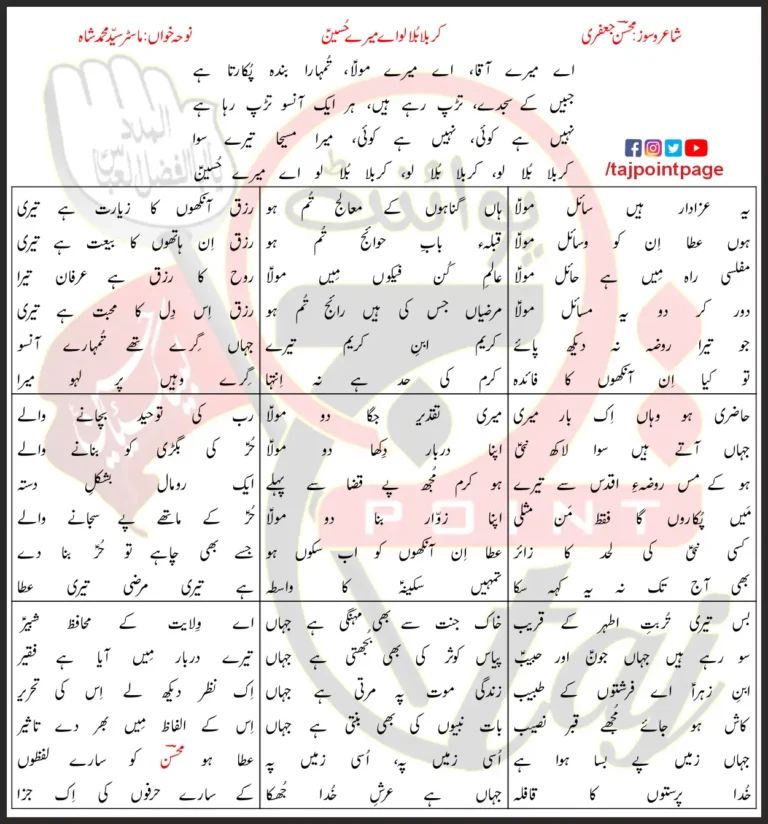 شاعر و سوز: محسنؔ جعفری
کربلا بُلا لو اے میرے حُسینؑ
نوحہ خواں: ماسٹر سیّد محمد شاہ
اے میرے آقا، اے میرے مولاؑ، تُمہارا بندہ پُکارتا ہے
جبیں کے سجدے، تڑپ رہے ہیں، ہر ایک آنسو تڑپ رہا ہے
نہیں ہے کوئی، نہیں ہے کوئی، میرا مسیحا تیرے سوا
کربلا بُلا لو، کربلا بُلا لو، کربلا بُلا لو اے میرے حُسینؑ
/tajpointpage
یہ عزادار ہیں سائل مولاؑ
ہوں عطا اِن کو وسائل مولاؑ
مفلسی راہ مِیں ہے حائل مولاؑ
دور کر دو یہ مسائل مولاؑ
جو تیرا روضہ نہ دیکھ پائے
تو کیا اِن آنکھوں کا فائدہ
ہاں گناہوں کے معالج تُم ہو
قبلہء بابِ حوائج تُم ہو
عالمِ کُن فیکوں مِیں مولاؑ
مرضیاں جس کی ہیں رائج تُم ہو
کریم ابنِ کریم تیرے
کرم کی حد ہے نہ اِنتہا
رزق آنکھوں کا زیارت ہے تیری
رزق اِن ہاتھوں کا بیعت ہے تیری
روح کا رزق ہے عرفان تیرا
رزق اِس دِل کا محبت ہے تیری
جہاں گِرے تھے تُمہارے آنسو
گِرے وہیں پر لہو میرا
حاضری ہو وہاں اِک بار میری
جہاں آتے ہیں سوا لاکھ نبیؑ
ہو کے مس روضہءِ اقدس سے تیرے
مَیں پُکاروں گا فقط مَن مثلی
کسی نبیؑ کی لحد کا زائر
بھی آج تک نہ یہ کہہ سکا
میری تقدیر جگا دو مولاؑ
اپنا دربار دِکھا دو مولاؑ
ہو کرم مُجھ پے قضا سے پہلے
اپنا زوّار بنا دو مولاؑ
عطا اِن آنکھوں کو اب سکوں ہو
تمہیں سکینہؑ کا واسطہ
رب کی توحید بچانے والے
حُرؑ کی بگڑی کو بنانے والے
ایک رومال بشکلِ دستہ
حُرؑ کے ماتھے پے سجانے والے
جسے بھی چاہے تو حُرؑ بنا دے
ہے تیری مرضی تیری عطا
بس تیری تُربتِ اطہر کے قریب
سو رہے ہیں جہاں جونؑ اور حبیبؑ
ابنِ زہراؑ اے فرشتوں کے طبیب
کاش ہو جائے مُجھے قبر نصیب
جہاں زمیں پے بسا ہوا ہے
خُدا پرستوں کا قافلہ
خاک جنت سے بھی مہنگی ہے جہاں
پیاس کوثر کی بھی بُجھتی ہے جہاں
زندگی موت پہ مرتی ہے جہاں
بات نبیوں کی بھی بنتی ہے جہاں
اُسی زمیں پہ، اُسی زمیں پہ
جہاں ہے عرشِ خُدا جُھکا
اے وِلایت کے محافظ شبیرؑ
تیرے دربار مِیں آیا ہے فقیر
اِک نظر دیکھ لے اِس کی تحریر
اِس کے الفاظ مِیں بھر دے تاثیر
عطا ہو محسنؔ کو سارے لفظوں
کے سارے حرفوں کی اِک جزا
پوائنٹ
POINT
taj